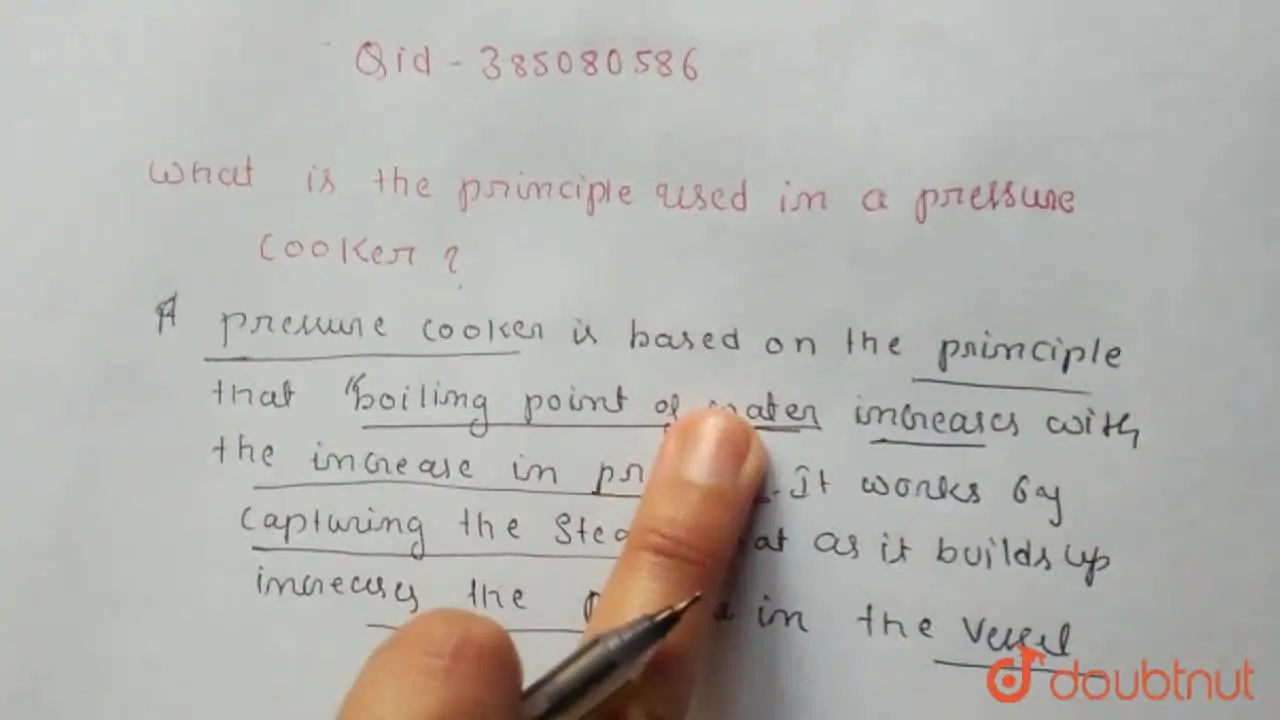 Qid - 385080586
What is the principle used in a pressure
cooker?
A pressure cooker is based on the principle
that "boiling point of water increases with
the increase in . It works by
capturing the at as it builds up
increases the in the vessel
doubtnut